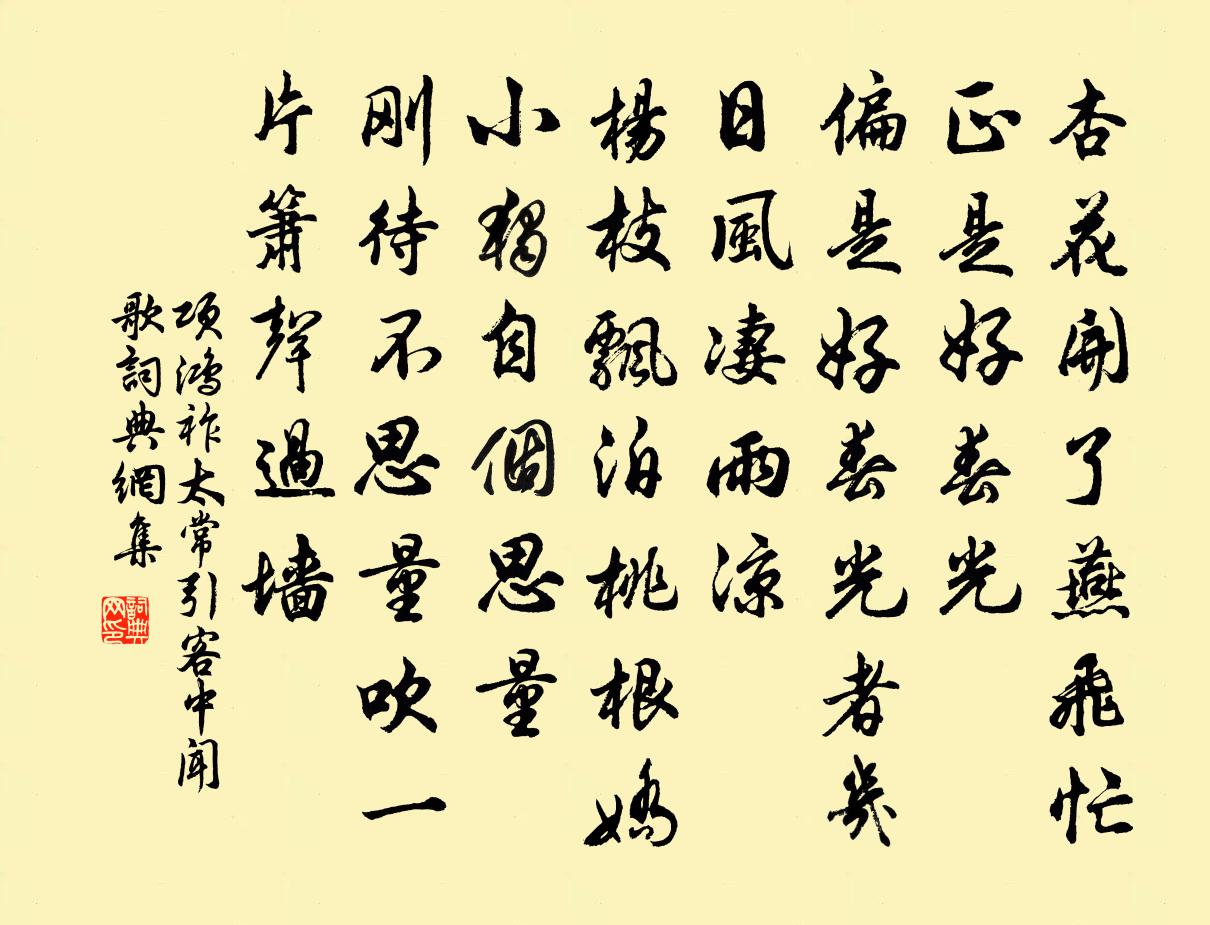 杏花開了燕飛忙
正是好春光
偏是好春光者幾
日風凄雨涼
楊枝飄泊桃根嬌
小獨自個思量
刚待不思量吹一
片簫聲過墙
項鴻祚太常引客中闻
歌詞典網集
詞典
网印